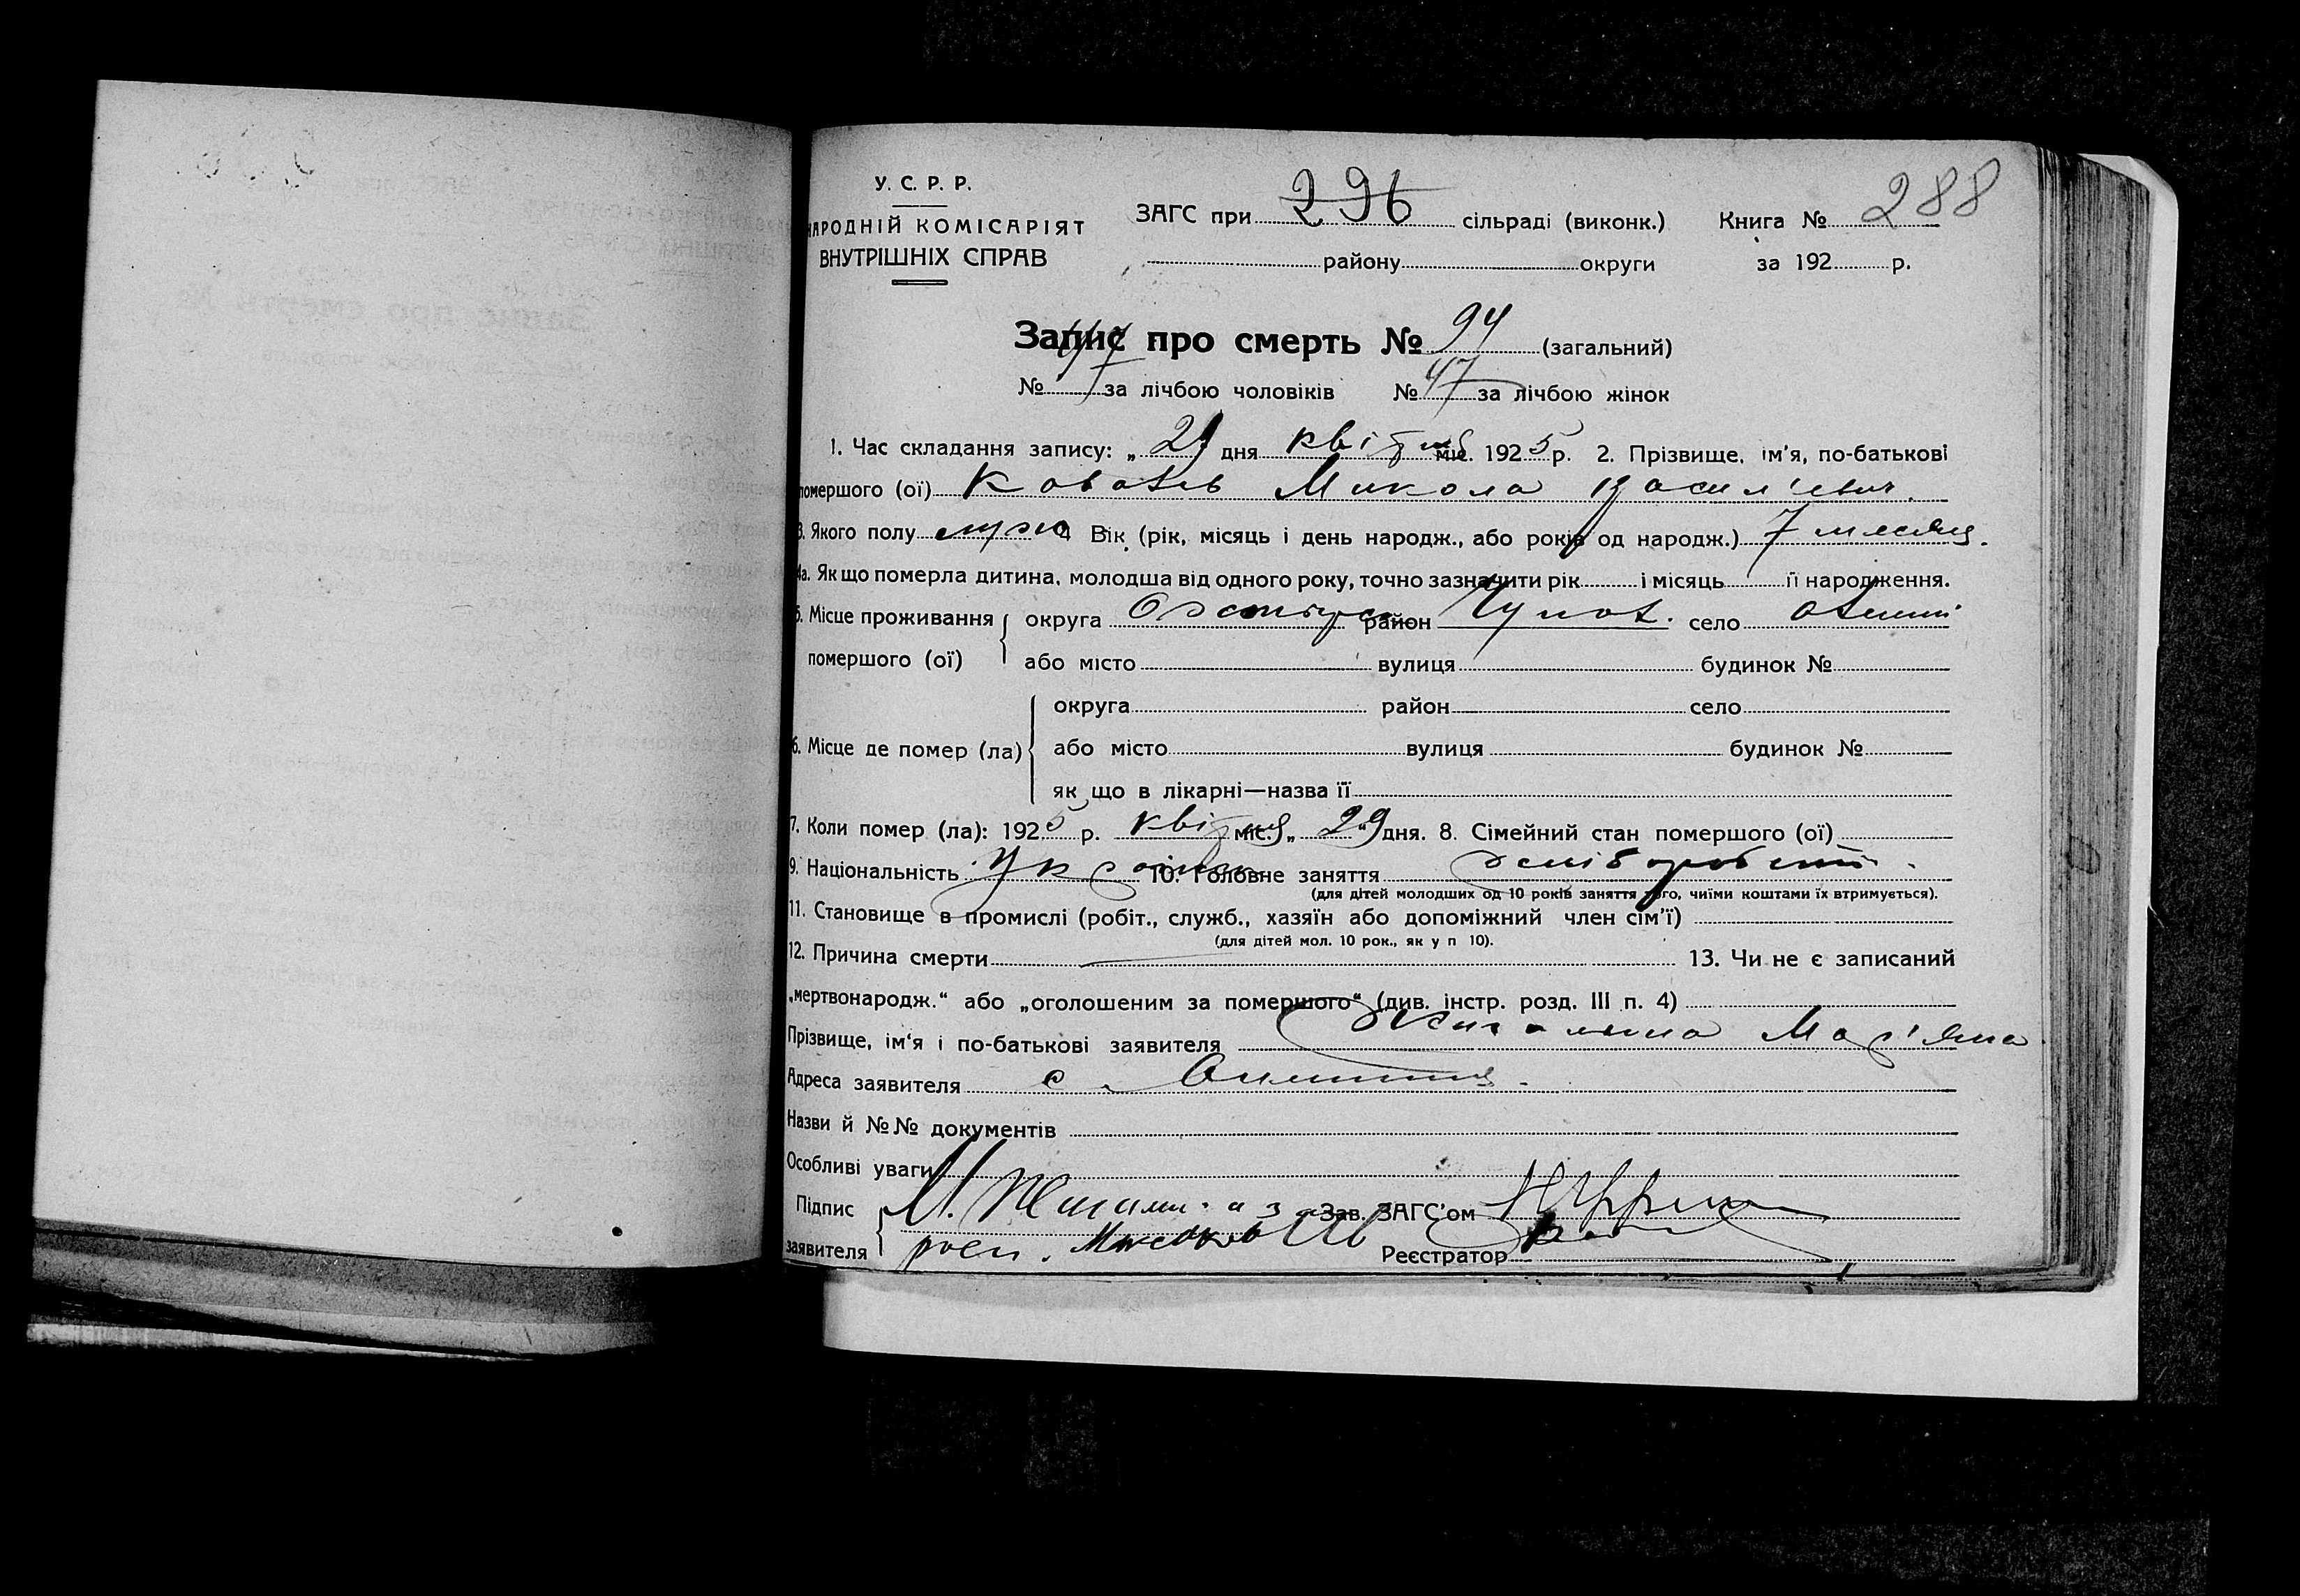 У. С. Р. Р.
НАРОДНІЙ КОМІСАРІЯТ
ВНУТРІШНІХ СПРАВ
ЗАГС при 296 сільраді (виконк.) Книга № 288
району округи за 192 р.
Запис про смерть № 94 (загальний)
№ 47 за лічбою чоловіків № 47 за лічбою жінок
1. Час складання запису: „ 29 дня квітня міс. 1925 р. 2. Прізвище, ім'я, по-батькові
помершого (ої) Микола Васил'евич.
3. Якого полу муж 4 Вік (рік, місяць і день народж., або років од народж.) 7 месяц.
4а. Як що померла дитина, молодша від одного року, точно зазначити рік і місяць її народження.
5. Місце проживання округа район село
помершого (ої) або місто вулиця будинок №
округа район село
6. Місце де помер (ла) або місто вулиця будинок №
як що в лікарні—назва її
7. Коли помер (ла): 1925 р. квітня міс. „ 29 дня. 8. Сімейний стан помершого (ої)
9. Національність 10. Головне заняття
(для дітей молодших од 10 років заняття того, чиїми коштами їх втримується).
11. Становище в промислі (робіт., служб., хазяїн або допоміжний член сім'ї)
(для дітей мол. 10 рок., як у п 10).
12. Причина смерти 13. Чи не є записаний
„мертвонародж.“ або „оголошеним за помершого“ (див. інстр. розд. III п. 4)
Прізвище, ім'я і по-батькові заявителя Мар'яна
Адреса заявителя с.
Назви й №№ документів
Особливі уваги
Підпис М. Зав. ЗАГС'ом
заявителя Реєстратор